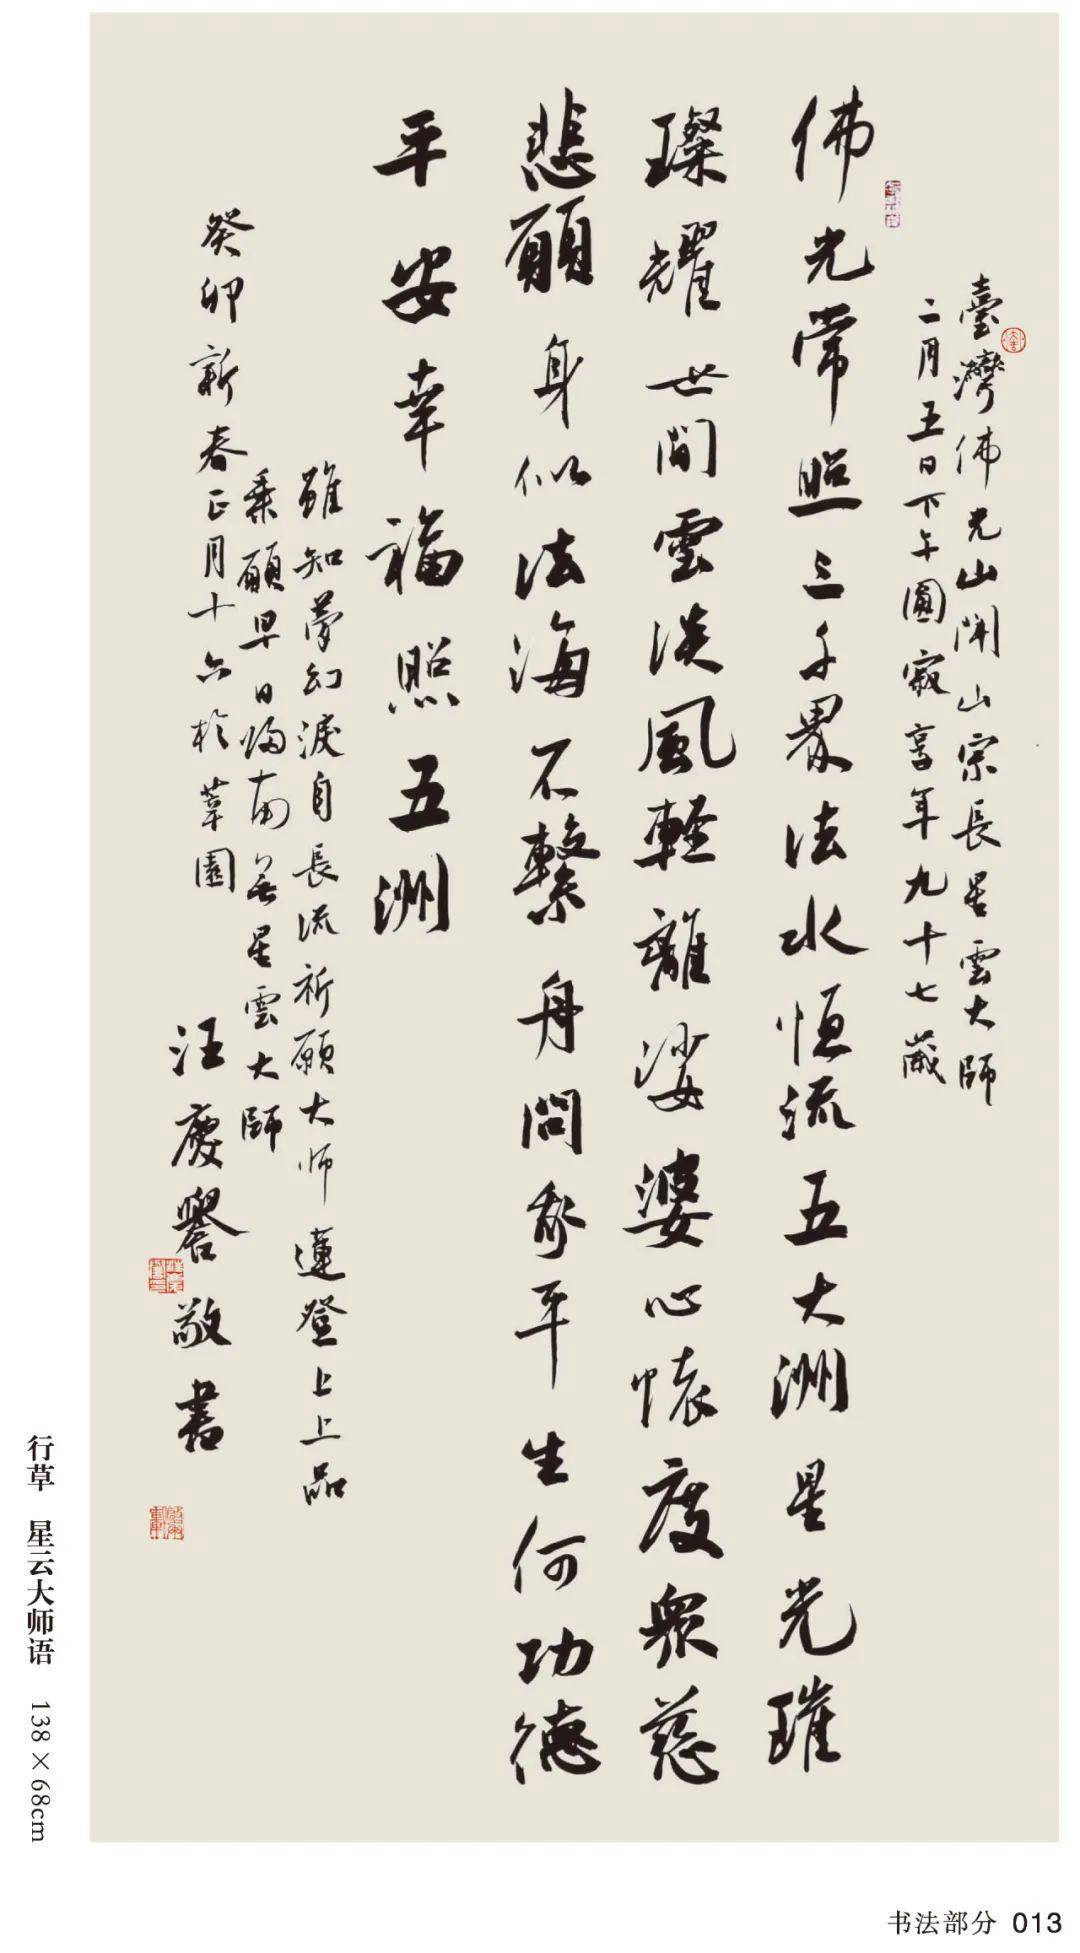 臺灣佛光山開山宗長星雲大師
二月五日下午圓寂享年九十七歲
佛光常照三千界法水恒流五大洲星光璀
璨耀世間雲淡風輕離娑婆心懷度眾慈
悲願身似法海不繫舟問我平生何功德
平安幸福照五洲
雖知夢幻淚自長流祈願大师蓮登上上品
乘願早日歸南無星雲大師
癸卯新春正月十六於莘園
汪慶譽敬書
行草 星云大师语 138×68cm
书法部分 013